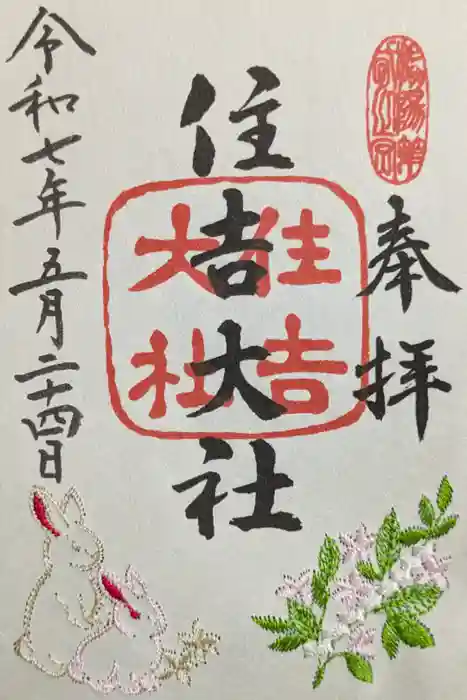 奉拝
住吉大社
住吉大社
令和七年五月二十四日